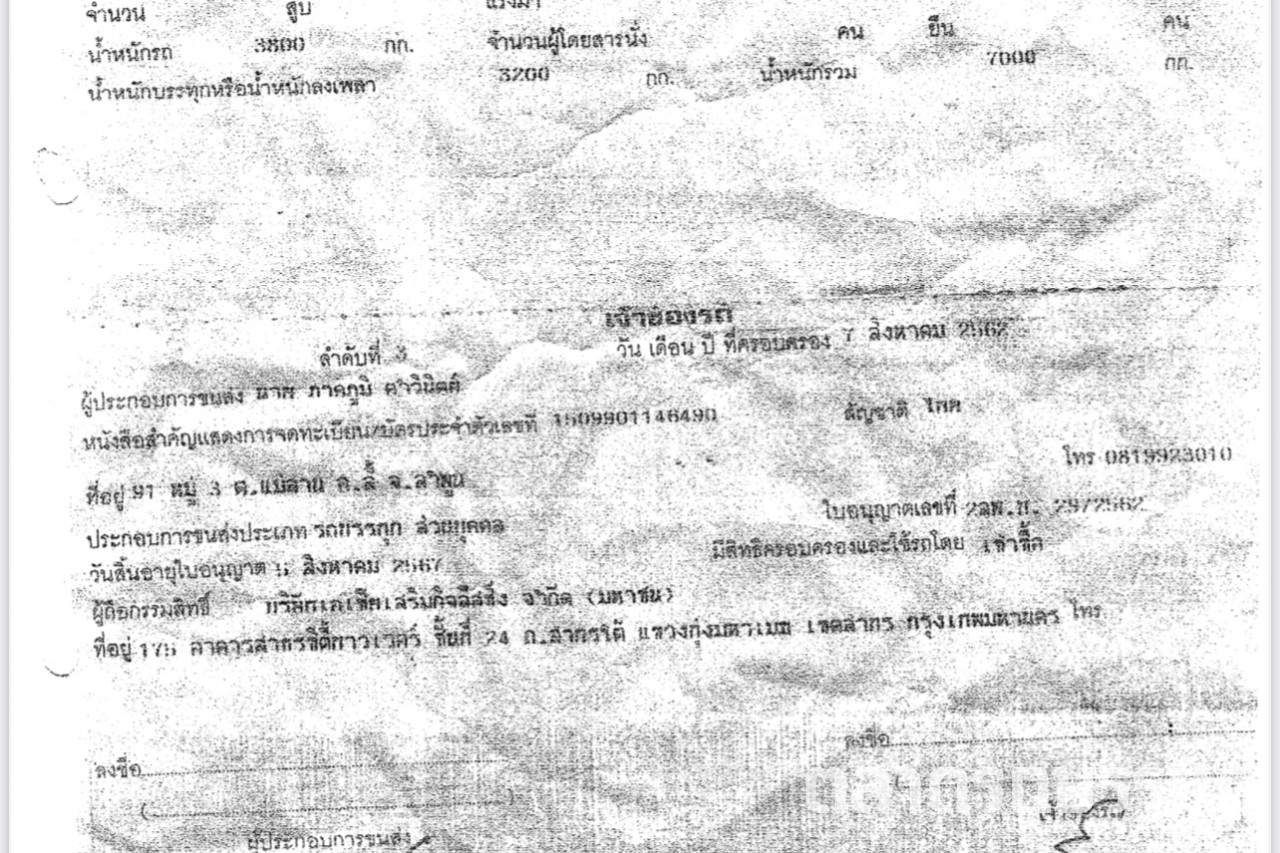 จำนวน สูบ แรงม้า
น้ำหนักรถ 3800 กก. จำนวนผู้โดยสารนั่ง คน ยืน คน
น้ำหนักบรรทุกหรือน้ำหนักลงเพลา 3200 กก. น้ำหนักรวม 7000 กก.
เจ้าของรถ
ลำดับที่ 3 วัน เดือน ปี ที่ครอบครอง 7 สิงหาคม 2562
ผู้ประกอบการขนส่ง นาย ภาคภูมิ
หนังสือสำคัญแสดงการจดทะเบียน/บัตรประจำตัวเลขที่ 1509901146490 สัญชาติ ไทย
โทร 0819923010
ที่อยู่ 91 หมู่ 3 ต.แม่ลาน อ.ลี้ จ.ลำพูน
ใบอนุญาตเลขที่ 2ลพ.บ. 297/2562
ประกอบการขนส่งประเภท รถบรรทุก ส่วนบุคคล
มีสิทธิครอบครองและใช้รถโดย เช่าซื้อ
วันสิ้นอายุใบอนุญาต สิงหาคม 2567
ผู้ถือกรรมสิทธิ์ บริษัทเอเซียเสริมกิจลีสซิ่ง จำกัด (มหาชน)
ที่อยู่ 175 อาคารสาธรซิตี้ทาวเวอร์ ชั้นที่ 24 ถ.สาทรใต้ แขวงทุ่งมหาเมฆ เขตสาทร กรุงเทพมหานคร โทร
ลงชื่อ ลงชื่อ
ผู้ประกอบการขนส่ง